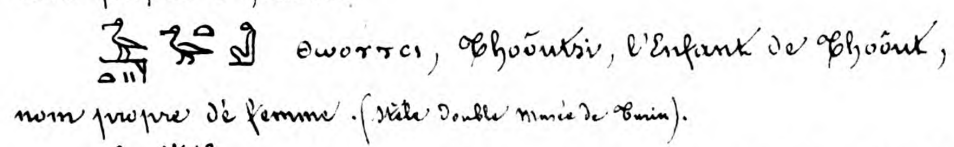 𓅝𓏏𓏭 𓅭𓏏 𓁐 ⲑⲱⲟⲩⲧⲥⲓ, Thoôutsi, l'Enfant de Thoôut,
nom propre de femme. (Stèle double Musée de Turin).